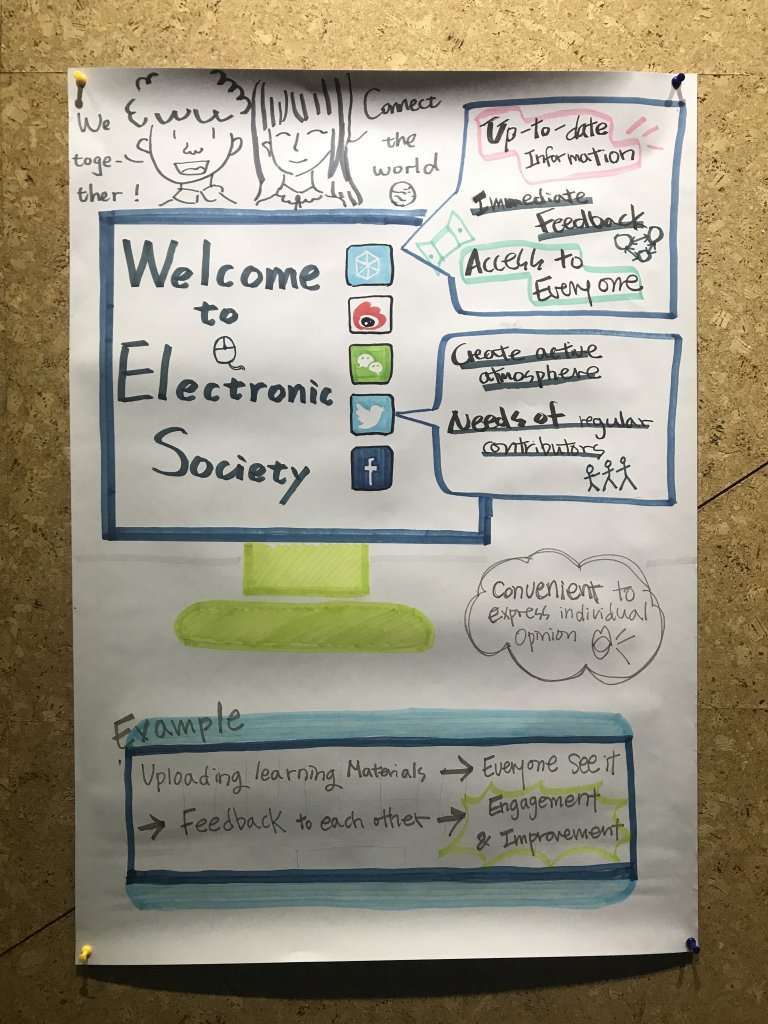 We
toge-
ther!
Connect
the
world
Welcome
to
Electronic
Society
f
Up-to-date
Information
Immediate
Feedback
Access to
Everyone
Create active
atmosphere
Needs of regular
contributors
Convenient to
express individual
Opinion
Example
Uploading learning Materials → Everyone see it
→ Feedback to each other → Engagement
& Improvement